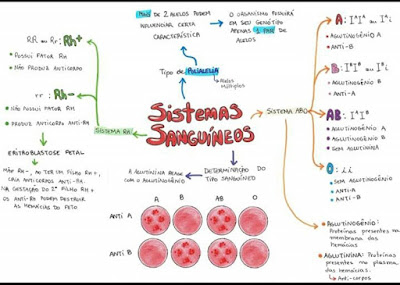 MAIS DE 2 ALELOS PODEM
INFLUENCIAR CERTA
CARACTERÍSTICA
O ORGANISMO POSSUIRÁ
EM SEU GENÓTIPO
APENAS 1 PAR DE
ALELOS
Tipo de POLIALELIA
Alelos
Múltiplos
SISTEMAS
SANGUÍNEOS
SISTEMA RH
RR ou Rr: Rh+
• POSSUI FATOR RH
• NÃO PRODUZ ANTICORPO
rr: Rh-
• NÃO POSSUI FATOR RH
• PRODUZ ANTICORPO ANTI-RH
ERITROBLASTOSE FETAL
MÃE RH-, AO TER UM FILHO RH+,
CRIA ANTICORPOS ANTI-RH.
NA GESTAÇÃO DO 2º FILHO RH+
OS ANTI-RH PODEM DESTRUIR
AS HEMÁCIAS DO FETO
SISTEMA ABO
A: IᴬIᴬ ou Iᴬi
• AGLUTINOGÊNIO A
• ANTI-B
B: IᴮIᴮ ou Iᴮi
• AGLUTINOGÊNIO B
• ANTI-A
AB: IᴬIᴮ
• AGLUTINOGÊNIO A
• AGLUTINOGÊNIO B
• SEM AGLUTININA
O: ii
• SEM AGLUTINOGÊNIO
• ANTI-A
• ANTI-B
• AGLUTINOGÊNIO:
Proteínas presentes na
membrana das
hemácias
• AGLUTININA: Proteínas
presentes no plasma
das hemácias.
Anti-corpos
DETERMINAÇÃO DO
TIPO SANGUÍNEO
A AGLUTININA REAGE
COM O AGLUTINOGÊNIO
A B AB O
ANTI A
ANTI B